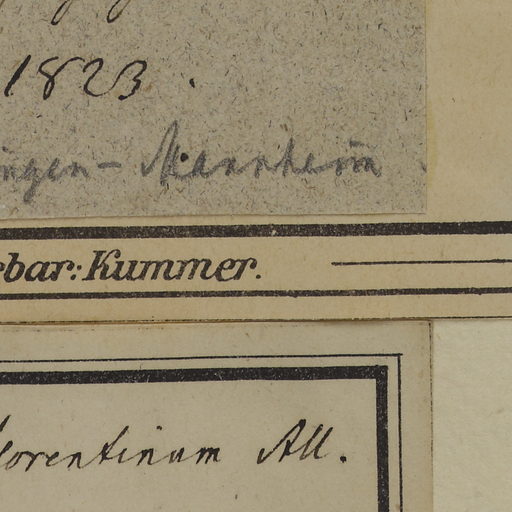 1823.
ingen - Mannheim
rbar: Kummer.
lorentinum All.